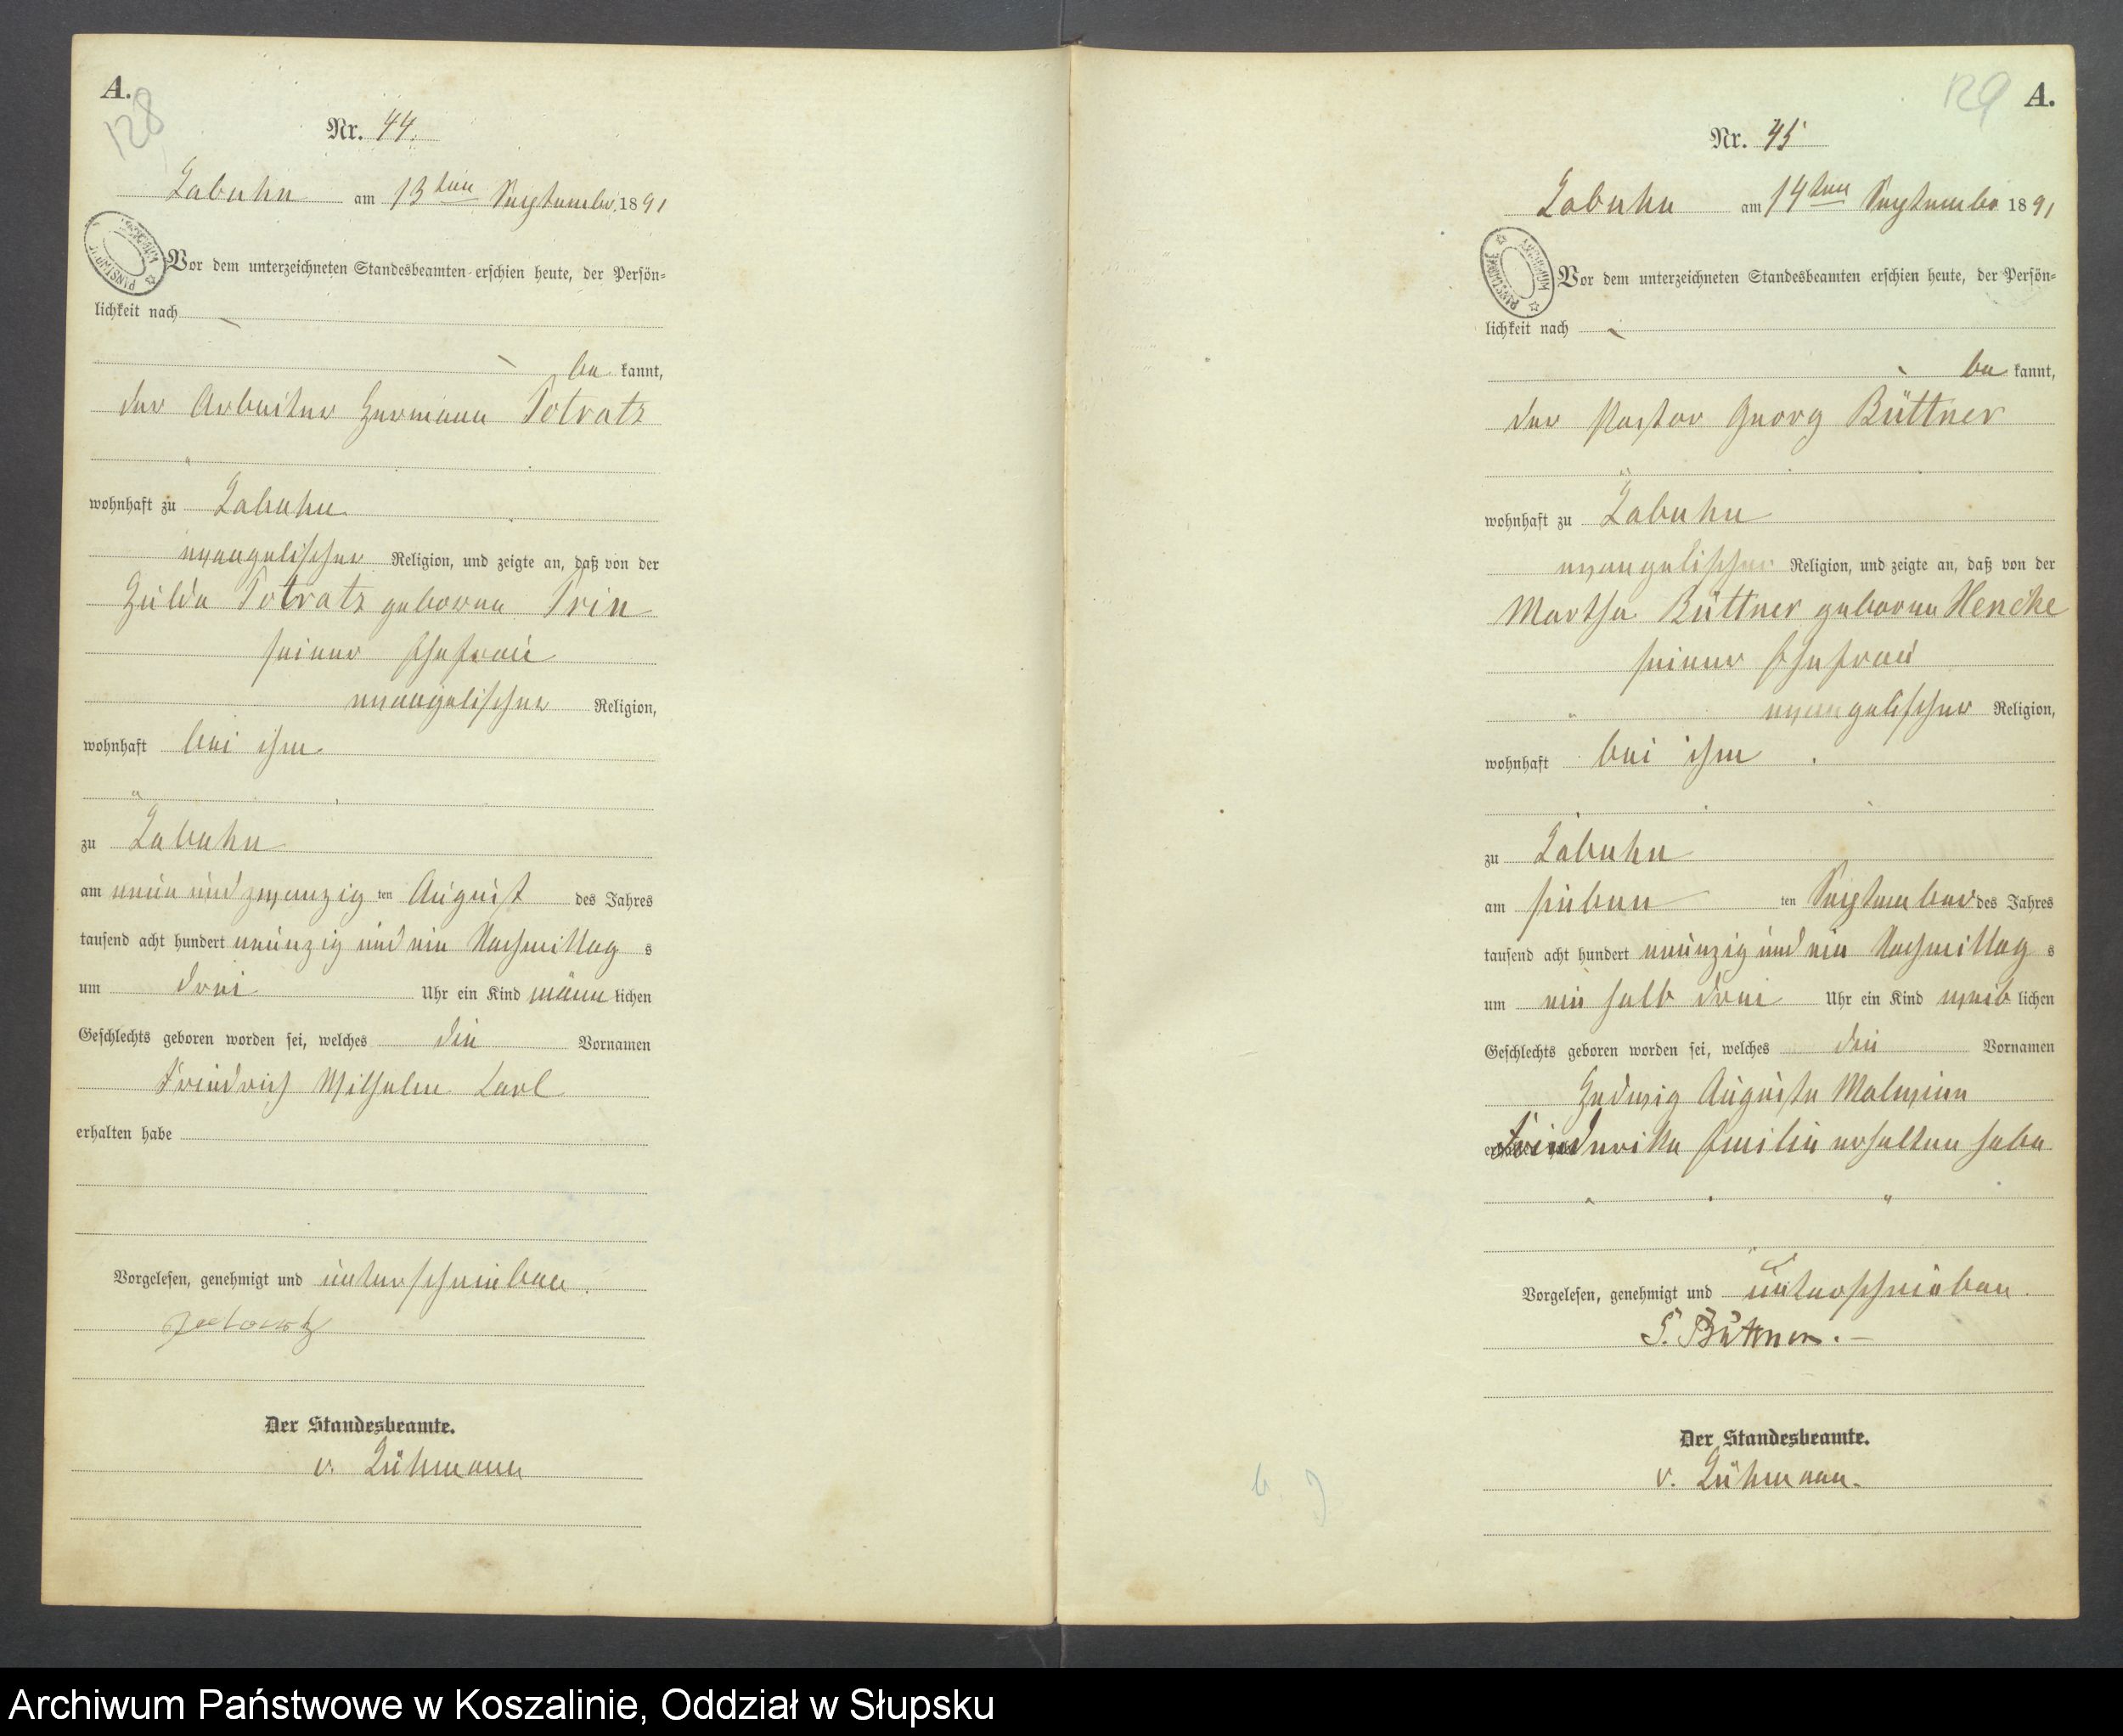 A.
128
Nr. 44.
Labuhn am 13ten September 1891
Vor dem unterzeichneten Standesbeamten erschien heute, der Persön-
lichkeit nach
be kannt,
der Arbeiter Hermann Potratz
wohnhaft zu Labuhn
evangelischer Religion, und zeigte an, daß von der
Hulda Potratz geborene Prin
seiner Ehefrau
evangelischer Religion,
wohnhaft bei ihm
zu Labuhn
am neun und zwanzig ten August des Jahres
tausend acht hundert neunzig und ein Nachmittag s
um drei Uhr ein Kind männ lichen
Geschlechts geboren worden sei, welches die Vornamen
Friedrich Wilhelm Carl
erhalten habe
Vorgelesen, genehmigt und unterschrieben.
Der Standesbeamte.
v. Lühmann
129
A.
Nr. 45
Labuhn am 14ten September 1891
Vor dem unterzeichneten Standesbeamten erschien heute, der Persön-
lichkeit nach
be kannt,
der Pastor Georg Büttner
wohnhaft zu Labuhn
evangelischer Religion, und zeigte an, daß von der
Martha Büttner geborene Hencke
seiner Ehefrau
evangelischer Religion,
wohnhaft bei ihm
zu Labuhn
am sieben ten September des Jahres
tausend acht hundert neunzig und ein Nachmittag s
um ein halb drei Uhr ein Kind weib lichen
Geschlechts geboren worden sei, welches die Vornamen
Hedwig Auguste Malwine
Friederike Emilie erhalten habe
Vorgelesen, genehmigt und unterschrieben.
G. Büttner.
Der Standesbeamte.
v. Lühmann.
Archiwum Państwowe w Koszalinie, Oddział w Słupsku